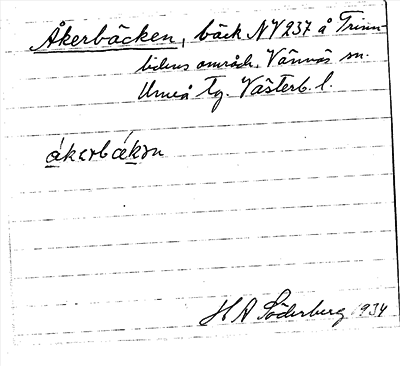 Åkerbäcken, bäck NV 237 å Trinn-
lidens område. Vännäs sn.
Umeå tg. Västerb. l.
ákərbákən
H A Söderberg 1934